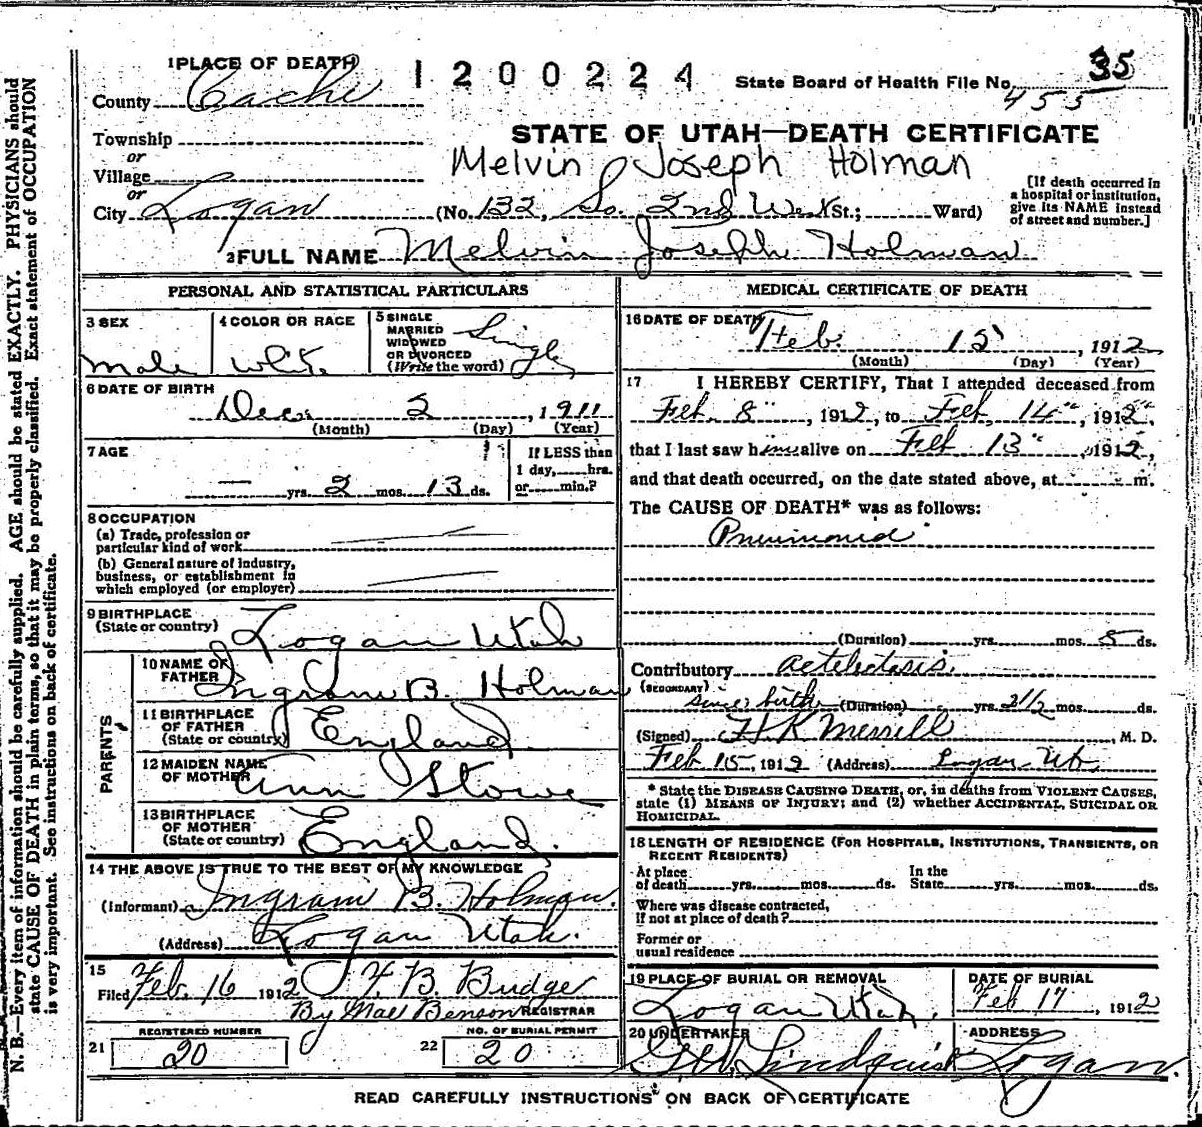 1 PLACE OF DEATH
1200224
State Board of Health File No. 35
455
County Cache
STATE OF UTAH—DEATH CERTIFICATE
Township
or
Melvin Joseph Holman
Village
or
City Logan (No. 132, So. 2nd West St.; Ward)
[If death occurred in
a hospital or institution,
give its NAME instead
of street and number.]
2 FULL NAME Melvin Joseph Holman
PERSONAL AND STATISTICAL PARTICULARS
3 SEX
male
4 COLOR OR RACE
White
5 SINGLE
MARRIED
WIDOWED
OR DIVORCED
(Write the word)
Single
6 DATE OF BIRTH
Dec. 2, 1911
(Month) (Day) (Year)
7 AGE
— yrs. 2 mos. 13 ds.
If LESS than
1 day, hrs.
or min.?
8 OCCUPATION
(a) Trade, profession or
particular kind of work
(b) General nature of industry,
business, or establishment in
which employed (or employer)
9 BIRTHPLACE
(State or country)
Logan Utah
PARENTS
10 NAME OF
FATHER
Ingram B. Holman
11 BIRTHPLACE
OF FATHER
(State or country)
England.
12 MAIDEN NAME
OF MOTHER
Ann Stowe
13 BIRTHPLACE
OF MOTHER
(State or country)
England.
14 THE ABOVE IS TRUE TO THE BEST OF MY KNOWLEDGE
(Informant) Ingram B. Holman.
(Address) Logan Utah.
15
Filed Feb. 16 1912 F. B. Budge
By Mae Benson REGISTRAR
REGISTERED NUMBER
21 20
NO. OF BURIAL PERMIT
22 20
MEDICAL CERTIFICATE OF DEATH
16 DATE OF DEATH
Feb. 15, 1912
(Month) (Day) (Year)
17 I HEREBY CERTIFY, That I attended deceased from
Feb. 8", 1912, to Feb, 14", 1912,
that I last saw him alive on Feb 13", 1912,
and that death occurred, on the date stated above, at m.
The CAUSE OF DEATH* was as follows:
Pneumonia
(Duration) yrs. mos. 5 ds.
Contributory actelectasis.
(SECONDARY)
since birth (Duration) yrs. 2 1/2 mos. ds.
(Signed) H K Merrill, M. D.
Feb 15, 1912 (Address) Logan Ut.
* State the DISEASE CAUSING DEATH, or, in deaths from VIOLENT CAUSES,
state (1) MEANS OF INJURY; and (2) whether ACCIDENTAL, SUICIDAL OR
HOMICIDAL.
18 LENGTH OF RESIDENCE (FOR HOSPITALS, INSTITUTIONS, TRANSIENTS, OR
RECENT RESIDENTS)
At place
of death yrs. mos. ds.
In the
State yrs. mos. ds.
Where was disease contracted,
if not at place of death?
Former or
usual residence
19 PLACE OF BURIAL OR REMOVAL
Logan Utah.
DATE OF BURIAL
Feb 17, 1912
20 UNDERTAKER
G.W. Lindquist
ADDRESS
Logan.
READ CAREFULLY INSTRUCTIONS ON BACK OF CERTIFICATE
N. B.—Every item of information should be carefully supplied. AGE should be stated EXACTLY. PHYSICIANS should
state CAUSE OF DEATH in plain terms, so that it may be properly classified. Exact statement of OCCUPATION
is very important. See instructions on back of certificate.